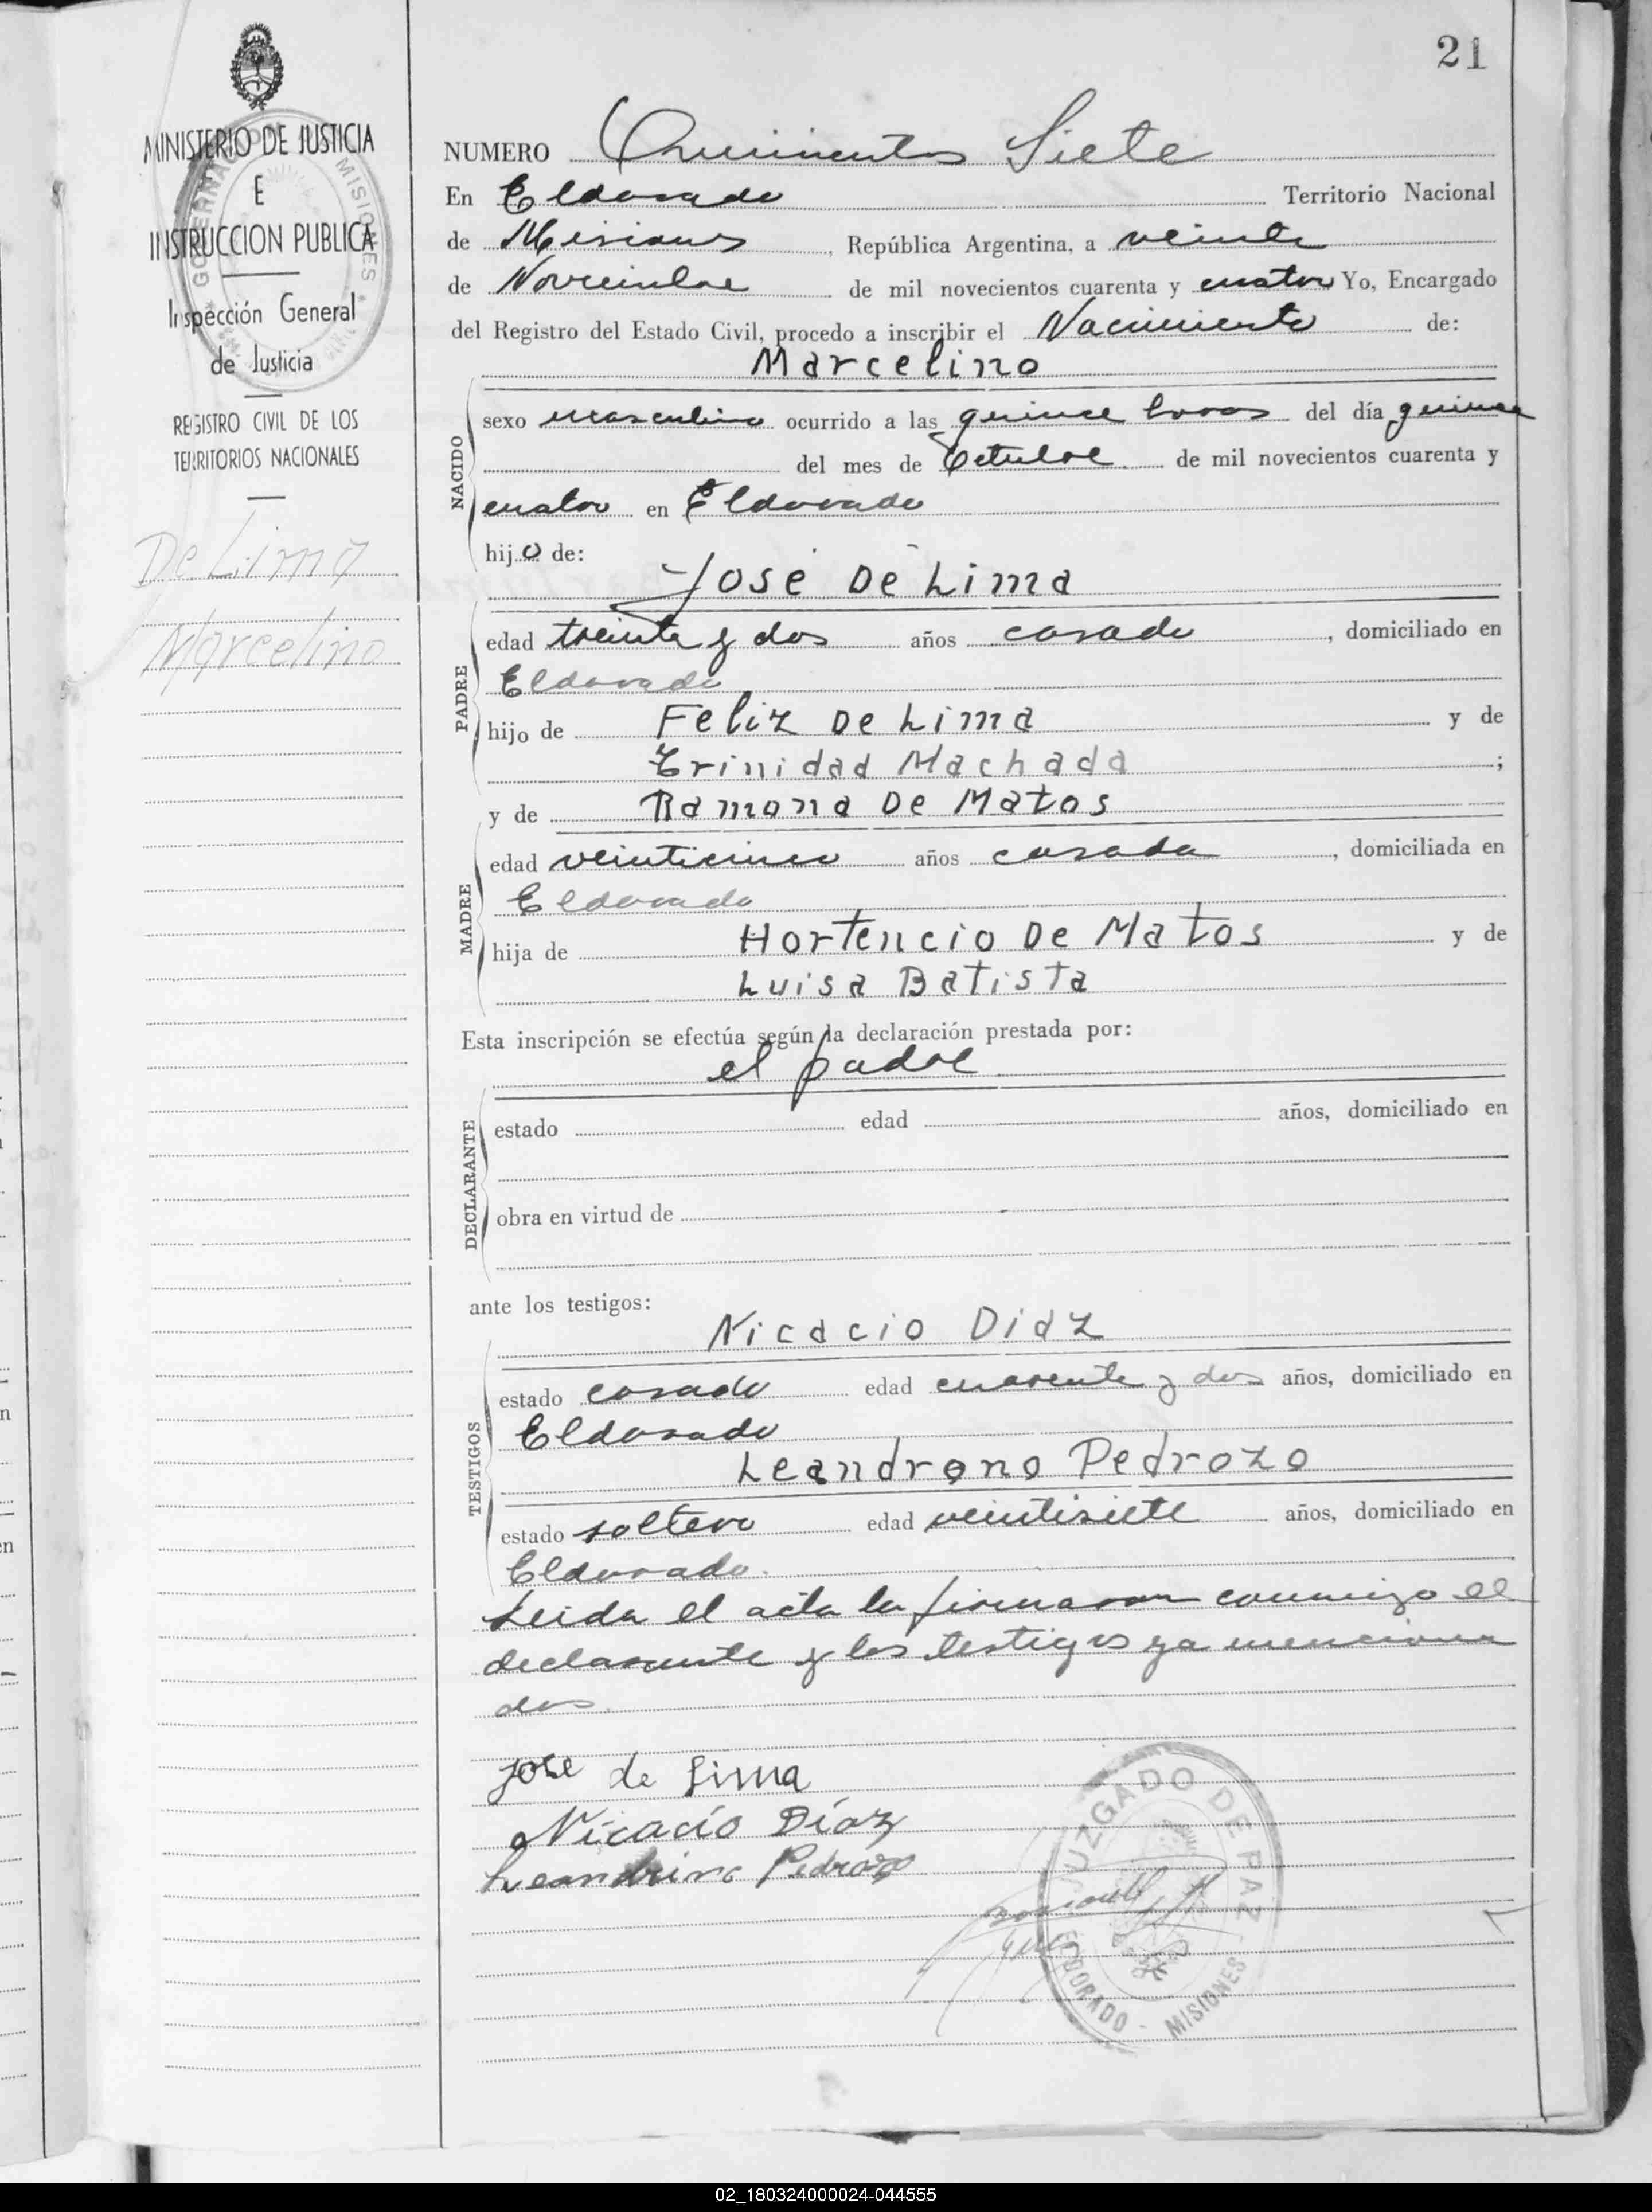 21
MINISTERIO DE JUSTICIA
E
INSTRUCCION PUBLICA
Inspección General
de Justicia
REGISTRO CIVIL DE LOS
TERRITORIOS NACIONALES
GOBERNACION MISIONES
De Lima
Marcelino
NUMERO Quinientos Siete
En Eldorado Territorio Nacional
de Misiones, República Argentina, a veinte
de Noviembre de mil novecientos cuarenta y cuatro Yo, Encargado
del Registro del Estado Civil, procedo a inscribir el Nacimiento de:
Marcelino
NACIDO
sexo masculino ocurrido a las quince horas del día quince
del mes de Octubre de mil novecientos cuarenta y
cuatro en Eldorado
hijo de:
José De Lima
PADRE
edad treinta y dos años casado, domiciliado en
Eldorado
hijo de Feliz De Lima y de
Trinidad Machada;
y de Ramona De Matos
MADRE
edad veinticinco años casada, domiciliada en
Eldorado
hija de Hortencio De Matos y de
Luisa Batista
Esta inscripción se efectúa según la declaración prestada por:
el padre
DECLARANTE
estado edad años, domiciliado en
obra en virtud de
ante los testigos:
Nicacio Diaz
TESTIGOS
estado casado edad cuarenta y dos años, domiciliado en
Eldorado
Leandrono Pedrozo
estado soltero edad veintisiete años, domiciliado en
Eldorado.
Leida el acta la firmaron conmigo el
declarante y los testigos ya menciona
dos.
José de Lima
Nicacio Díaz
Leandrino Pedrozo
JUZGADO DE PAZ
ELDORADO - MISIONES
02_180324000024-044555